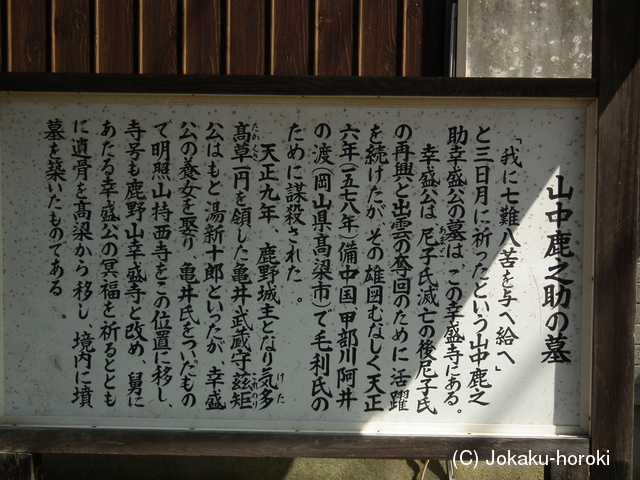 山中鹿之助の墓
「我に七難八苦を与へ給へ」
と三日月に祈ったという山中鹿之
助幸盛公の墓は、この幸盛寺にある。
幸盛公は、尼子氏滅亡の後尼子氏
あまこ
の再興と出雲の奪回のために活躍
を続けたが、その雄図むなしく天正
六年(一五七八年)備中国甲部川阿井
の渡(岡山県高梁市)で毛利氏の
ために謀殺された。
天正九年、鹿野城主となり気多
けた
高草一円を領した亀井武蔵守玆矩
たかくさ
これのり
公はもと湯新十郎といったが、幸盛
公の養女を娶り、亀井氏をついだもの
で明照山持西寺をこの位置に移し、
寺号も鹿野山幸盛寺と改め、舅に
あたる幸盛公の冥福を祈るととも
に遺骨を高梁から移し、境内に墳
墓を築いたものである。
(C) Jokaku-horoki